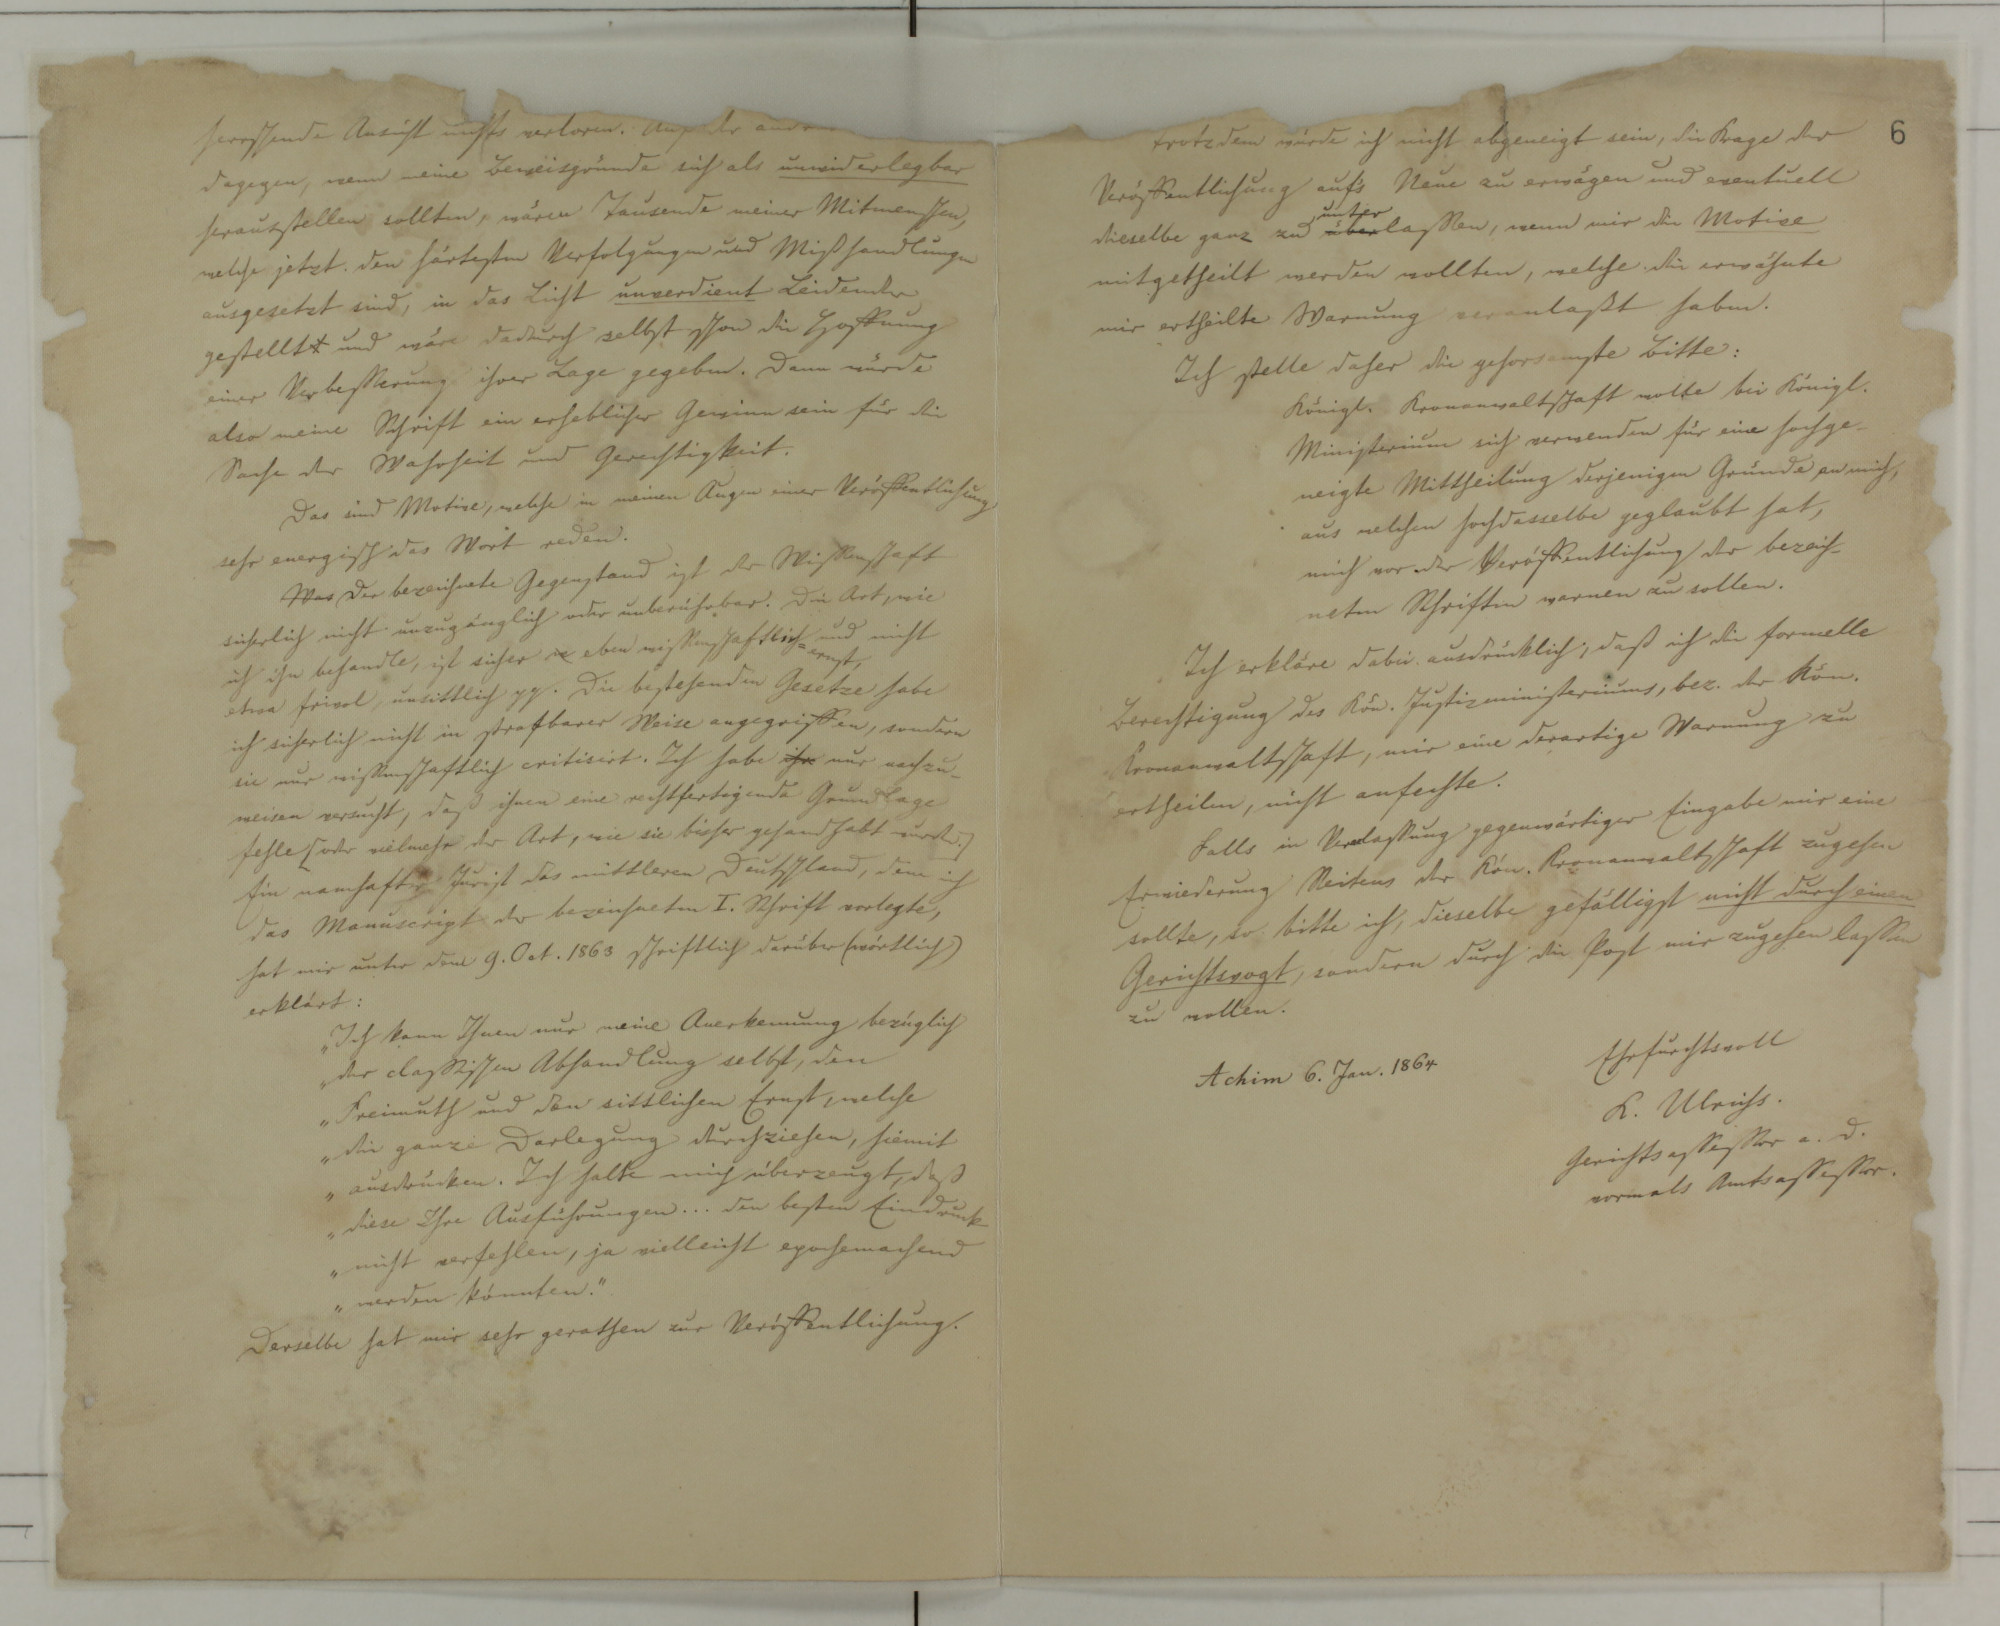 herrschende Ansicht nichts verloren. Auf der andren
dagegen, wenn meine Beweisgründe sich als unwiderlegbar
herausstellen sollten, wären Tausende meiner Mitmenschen,
welche jetzt den härtesten Verfolgungen und Mißhandlungen
ausgesetzt sind, in das Licht unverdient Leidender
gestellt und wäre dadurch selbst schon die Hoffnung
einer Verbesserung ihrer Lage gegeben. Dann würde
also meine Schrift ein erheblicher Gewinn sein für die
Sache der Wahrheit und Gerechtigkeit.
Das sind Motive, welche in meinen Augen einer Veröffentlichung
sehr energisch das Wort reden.
Was Der bezeichnete Gegenstand ist der Wissenschaft
sicherlich nicht unzugänglich oder unberührbar. Die Art, wie
ich ihn behandle, ist sicher eben wissenschaftlich-ernst, und nicht
etwa frivol, unsittlich pp. Die bestehenden Gesetze habe
ich sicherlich nicht in strafbarer Weise angegriffen, sondern
sie nur wissenschaftlich critisirt. Ich habe ihr nur nachzu-
weisen versucht, daß ihnen eine rechtfertigende Grundlage
fehle [oder vielmehr der Art, wie sie bisher gehandhabt wurde.]
Ein namhafter Jurist des mittleren Deutschland, dem ich
das Manuscript der bezeichneten I. Schrift vorlegte,
hat mir unter dem 9. Oct. 1863 schriftlich darüber (wörtlich)
erklärt:
„Ich kann Ihnen nur meine Anerkennung bezüglich
„der classischen Abhandlung selbst, den
„Freimuth und den sittlichen Ernst, welche
„die ganze Darlegung durchziehen, hiemit
„ausdrücken. Ich halte mich überzeugt, daß
„diese Ihre Ausführungen... den besten Eindruck
„nicht verfehlen, ja vielleicht epochemachend
„werden könnten."
Derselbe hat mir sehr gerathen zur Veröffentlichung.
6
Trotzdem würde ich nicht abgeneigt sein, die Frage der
Veröffentlichung aufs Neue zu erwägen und eventuell
unter
dieselbe ganz zu überlassen, wenn mir die Motive
mitgetheilt werden wollten, welche die erwähnte
mir ertheilte Warnung veranlaßt haben.
Ich stelle daher die gehorsamste Bitte:
Königl. Kronanwaltschaft wolle bei Königl.
Ministerium sich verwenden für eine hochge-
neigte Mittheilung derjenigen Gründe an mich,
aus welchen hochdasselbe geglaubt hat,
mich vor der Veröffentlichung der bezeich-
neten Schriften warnen zu sollen.
Ich erkläre dabei ausdrücklich, daß ich die formelle
Berechtigung des Kön. Justizministeriums, bez. der Kön.
Kronanwaltschaft, mir eine derartige Warnung zu
ertheilen, nicht anfechte.
Falls in Veranlassung gegenwärtiger Eingabe mir eine
Erwiederung Seitens der Kön. Kronanwaltschaft zugehen
sollte, so bitte ich, dieselbe gefälligst nicht durch einen
Gerichtsvogt, sondern durch die Post mir zugehen lassen
zu wollen.
Ehrfurchtsvoll
Achim 6. Jan. 1864
K. Ulrichs.
Gerichtsassessor a. D.
vormals Amtsassessor.